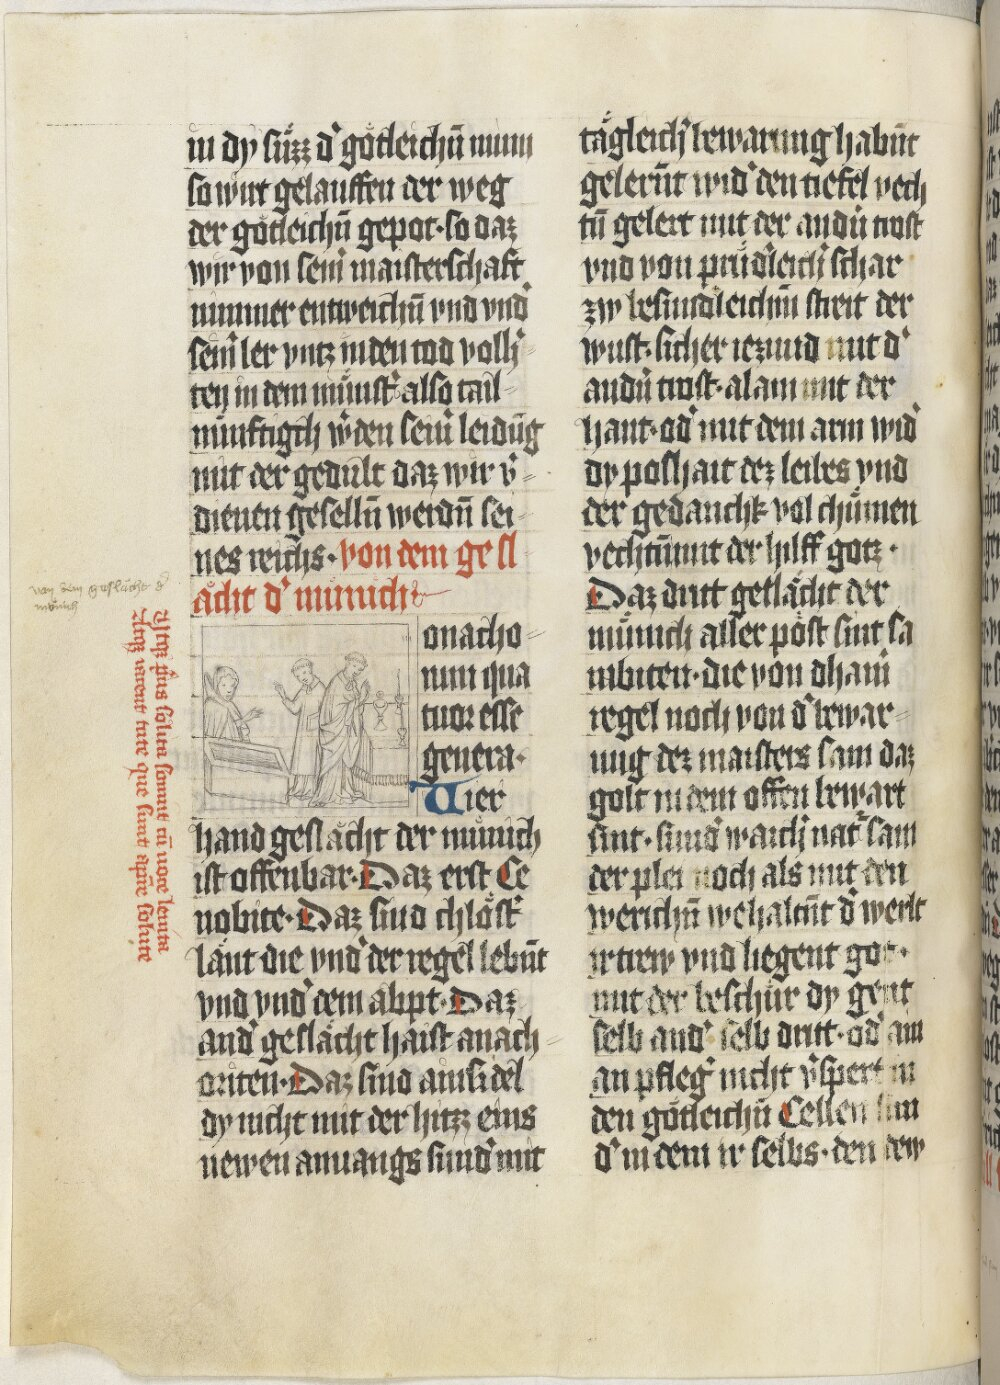 in dy süzz d' gӧtleichn̄ minn
so wirt gelauffen der weg
der gӧtleichn̄ gepot · so daz
wir von sein̄ maisterschaft
nimmer entweichn̄ vnd vnd'
sein̄ ler vntz in den tod volh'
ten in dem mu̇nst' also tail
nünftigch w'den sein̄ leidūg
mit der gedult daz wir v'
dienen geselln̄ werdn̄ sei
nes reichs · von dem gesl
ächt d' münich
von dem geslächt d'
münich
onacho
rum qua
tuor esse
genera ·
Vier
hand geslächt der münich
ist offenbar · Daz erst Ce
nobite · Daz sind chlöst'
läut die vnd' der regel lebn̄t
vnd vnd' dem abpt · Daz
and' geslächt haist anach
oriten · Daz sind ainsidel
dy nicht mit der hitzz eins
newen anuangs sund' mit
tägleich' bewarung habn̄t
gelern̄t wid' den tiefel vech
tn̄ gelert mit der andn̄ trost
vnd von prüd'leich' schar
zw besundleichm̄ streit der
wust · sicher iezund mit d'
andn̄ trost · alain mit der
hant · od' mit dem arm wid'
dy poshait dez leibes vnd
der gedanchk vol chümen
vechtn̄ mit der hilff gotz ·
Daz dritt geslächt der
münich aller pöst sint sa
rabiten · die von chain̄
regel noch von d' bewar
nung dez maisters sam daz
golt in dem offen bewart
sint · sund' waich' nat' sam
der plei noch als mit den
werichn̄ wehaltn̄t d' werlt
ir trew vnd liegent got ·
mit der beschür dy gent
selb and' selb dritt · od' ain
an pfleg' nicht v'spert in
den gӧtleichn̄ Cellen sun
d' in dem ir selbs · den dew